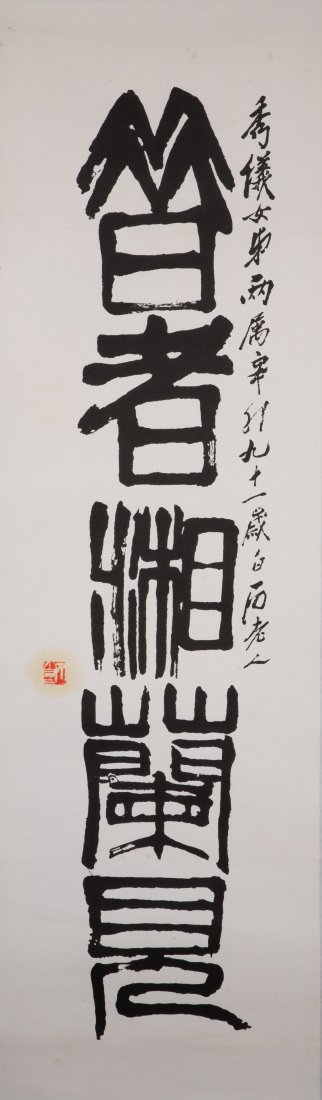 秀儀女弟兩属辛卯九十一歲白石老人
昔者湘蘭見